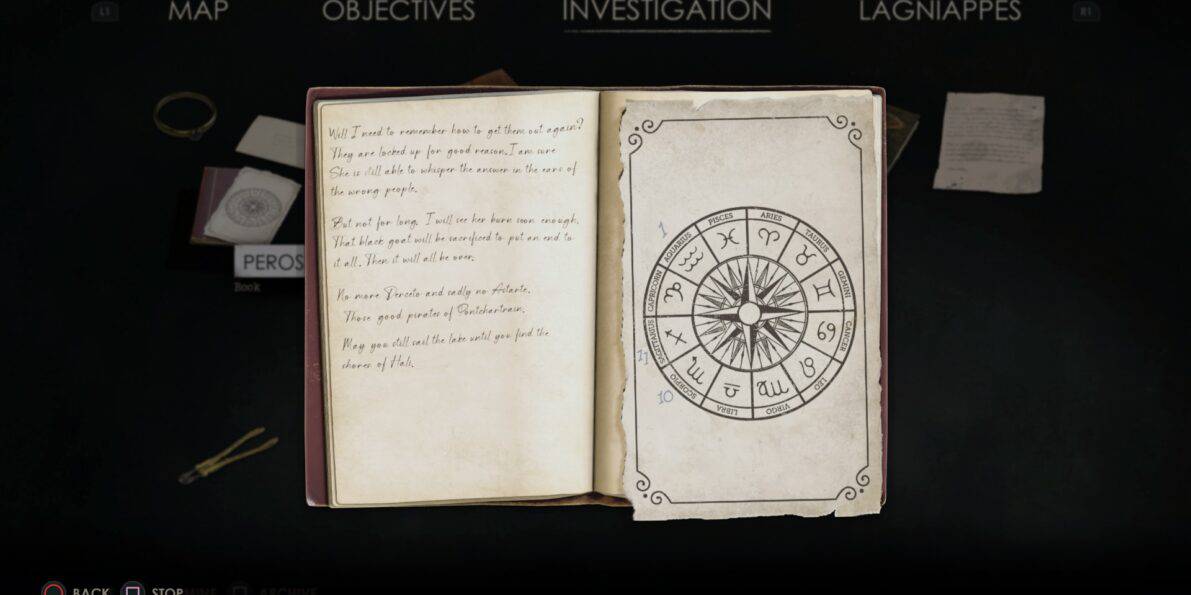 L1 MAP OBJECTIVES INVESTIGATION LAGNIAPPES R1
Well I need to remember how to get them out again?
They are locked up for good reason. I am sure
She is still able to whisper the answer in the ears of
the wrong people.
But not for long. I will see her burn soon enough.
That black goat will be sacrificed to put an end to
it all. Then it will all be over.
No more Derceto and sadly no Astarte.
Those good pirates of Pontchartrain.
May you still sail the lake until you find the
shores of Hali.
PEROS
Book
1
11
10
PISCES
ARIES
TAURUS
GEMINI
CANCER
LEO
VIRGO
LIBRA
SCORPIO
SAGITTARIUS
CAPRICORN
AQUARIUS
BACK STOP ARCHIVE